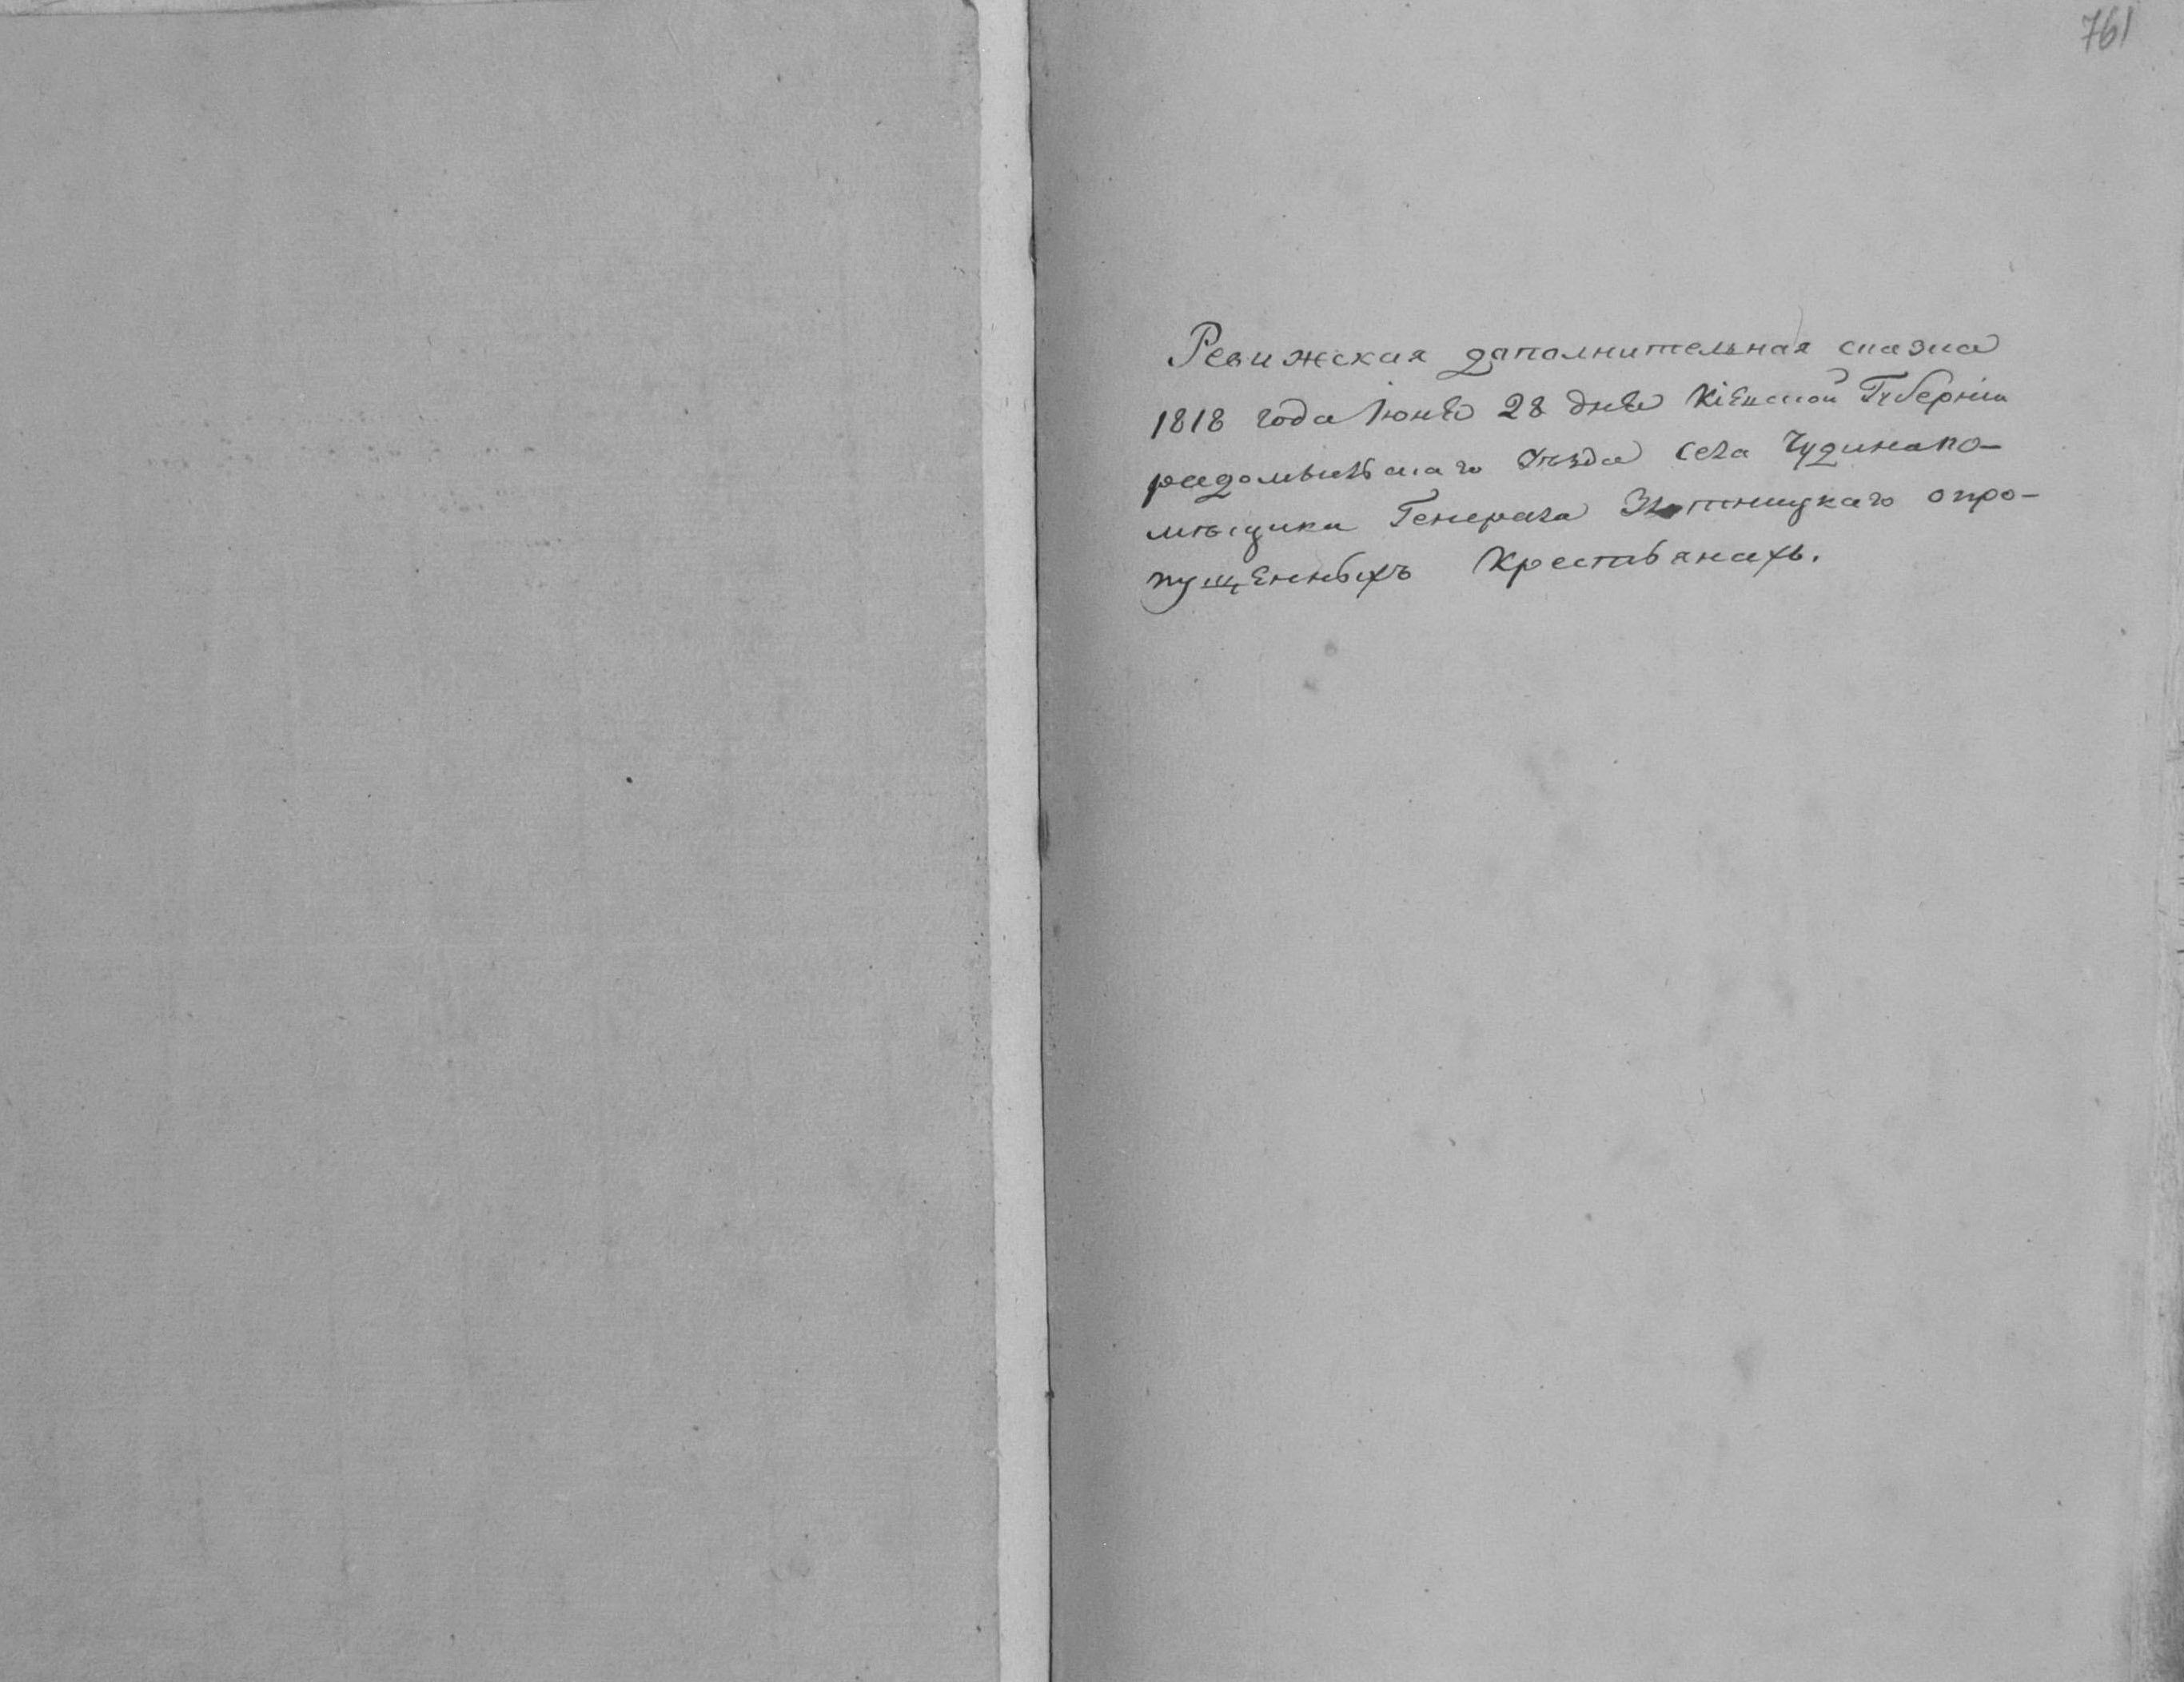 761
Ревижская дополнительная сказка
1818 года Июня 28 дня Кіевской Губерніи
радомысльскаго уѣзда села Чудина по-
мѣщика Генерала опро-
пущенныхъ Крестьянахъ.